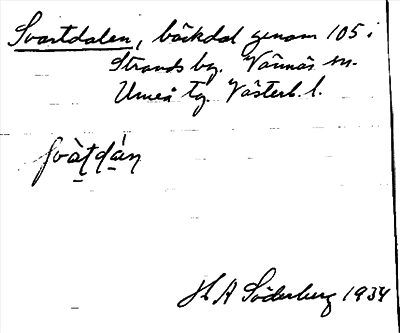 Svartdalen, bäckdal genom 105 i
Strands by. Vännäs sn.
Umeå tg. Västerb. l.
svàṭdáṇ
H A Söderberg 1934